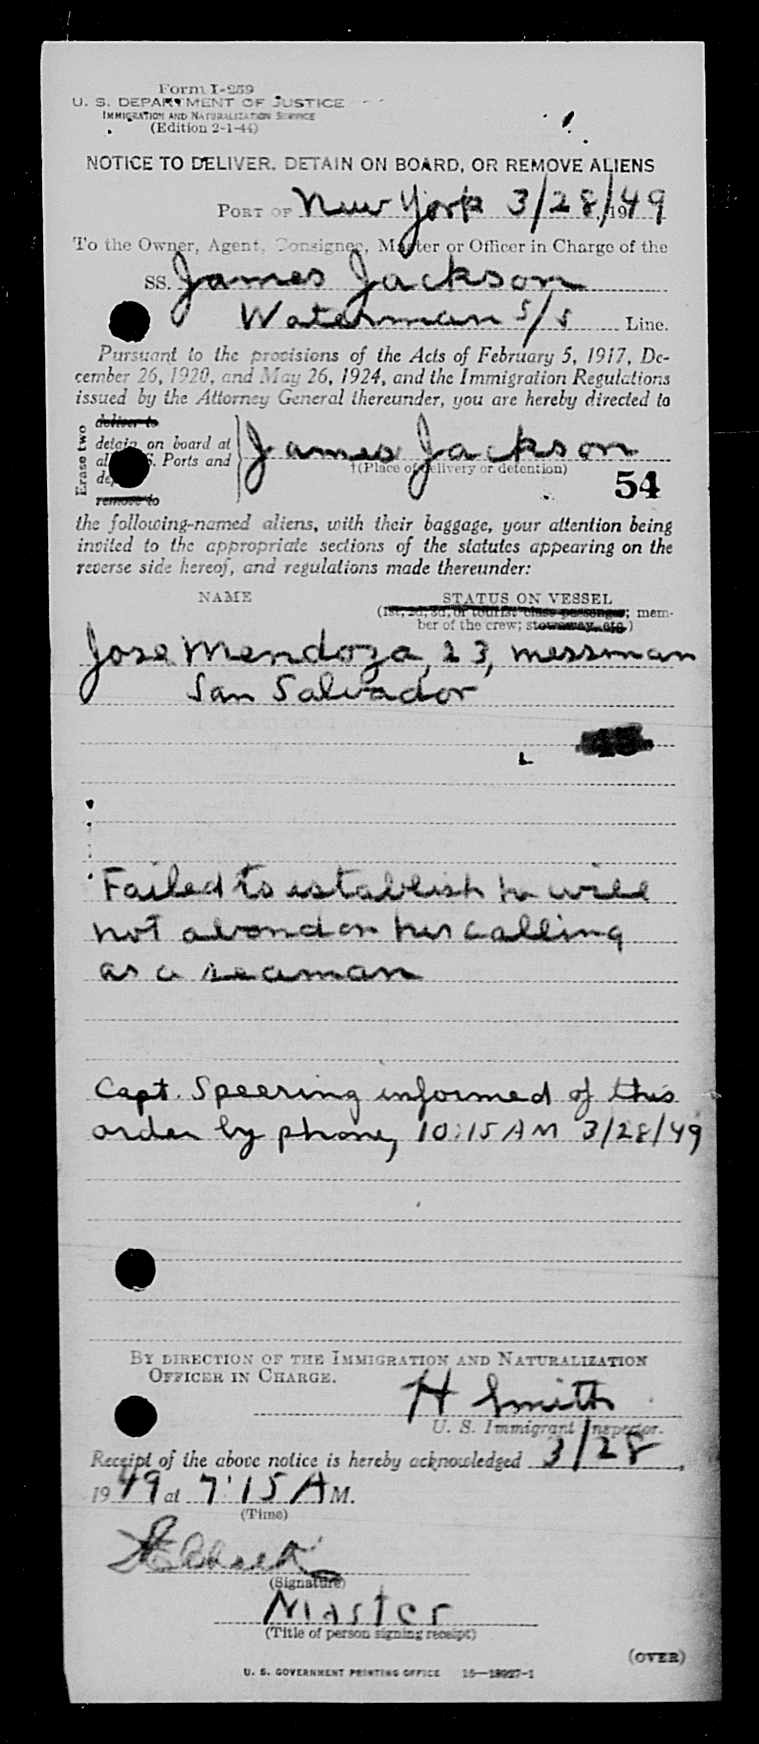 Form I-259
U. S. DEPARTMENT OF JUSTICE
IMMIGRATION AND NATURALIZATION SERVICE
(Edition 2-1-44)
NOTICE TO DELIVER, DETAIN ON BOARD, OR REMOVE ALIENS
PORT OF New York 3/28, 1949
To the Owner, Agent, Consignee, Master or Officer in Charge of the
SS. James Jackson
Waterman S/S Line.
Pursuant to the provisions of the Acts of February 5, 1917, De-
cember 26, 1920, and May 26, 1924, and the Immigration Regulations
issued by the Attorney General thereunder, you are hereby directed to
Erase two
deliver to
detain on board at
S. Ports and
remove to
James Jackson
†(Place of delivery or detention)
54
the following-named aliens, with their baggage, your attention being
invited to the appropriate sections of the statutes appearing on the
reverse side hereof, and regulations made thereunder:
NAME STATUS ON VESSEL
(1st, 2d, 3d, or tourist class passenger; mem-
ber of the crew; stowaway, etc.)
Jose Mendoza, 23, messman
San Salvador
Failed to establish he will
not abondon his calling
as a seaman
Capt. Speering informed of this
order by phone, 10:15 AM 3/28/49
BY DIRECTION OF THE IMMIGRATION AND NATURALIZATION
OFFICER IN CHARGE.
H Smith
U. S. Immigrant Inspector.
Receipt of the above notice is hereby acknowledged 3/28,
1949 at 7:15 A M.
(Time)
(Signature)
Master
(Title of person signing receipt)
(OVER)
U. S. GOVERNMENT PRINTING OFFICE 16—18927-1